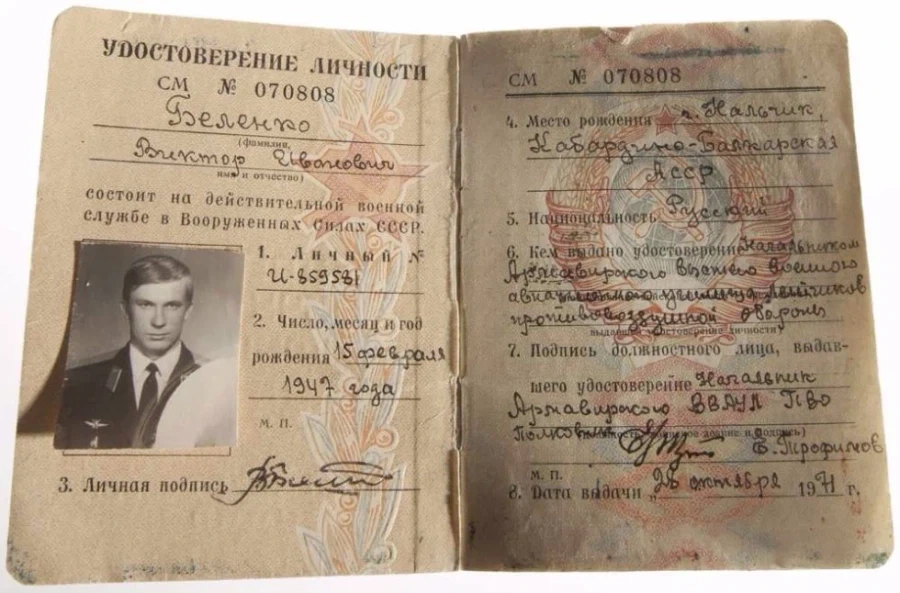 УДОСТОВЕРЕНИЕ ЛИЧНОСТИ
СМ № 070808
Беленко
(фамилия,
Виктор Иванович
имя и отчество)
состоит на действительной военной
службе в Вооруженных Силах СССР.
1. Личный №
И-859581
2. Число, месяц и год
рождения 15 февраля
1947 года
М. П.
3. Личная подпись
СМ № 070808
4. Место рождения г. Нальчик,
Кабардино-Балкарская
АССР
5. Национальность Русский
6. Кем выдано удостоверение Начальником
Армавирского высшего военного
авиационного училища лётчиков
противовоздушной обороны
выдавшей удостоверение личности)
7. Подпись должностного лица, выдав-
шего удостоверение Начальник
Армавирского ВВАУЛ ПВО
Полковник Е. Трофимов
М. П.
8. Дата выдачи „26 октября 1971 г.